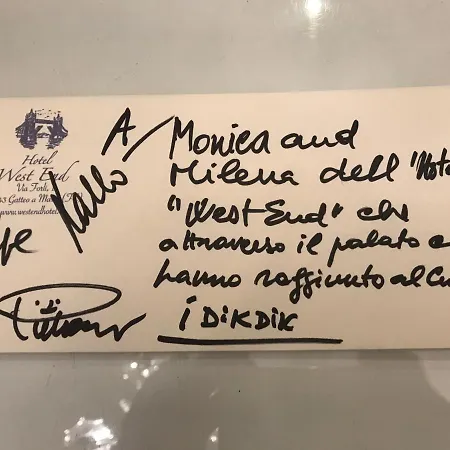 Hotel
West End
Via Forlì,
Gatteo a Mare (FC)
www.westendhotel
A/ Monica and
Milena dell'Hote
"West End" che
attraverso il palato c
hanno raggiunto al Cu
i DiKDiK